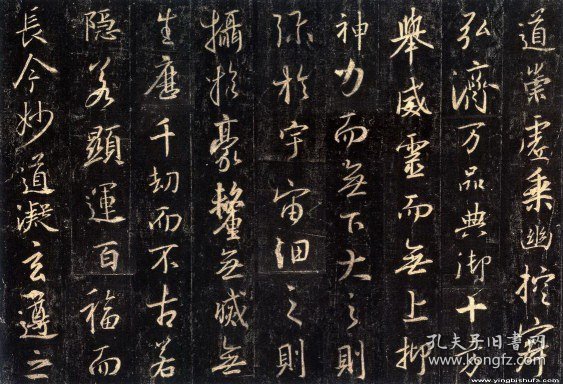 道崇虚乘幽控寂
弘濟万品典御十方
舉威靈而無上抑
神力而無下大之則
弥於宇宙細之則
攝於豪釐無滅無
生歷千劫而不古若
隐若顯運百福而
長今妙道凝玄遵之
孔夫子旧书网
www.kongfz.com
www.yingbishufa.com